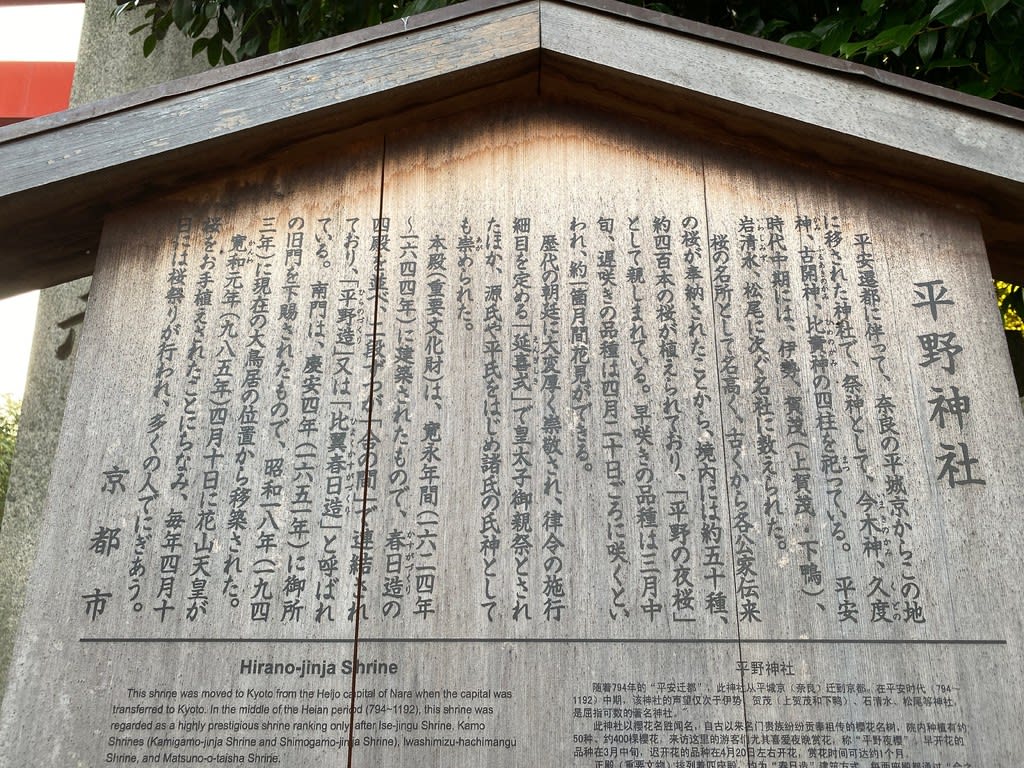 平野神社
平安遷都に伴って、奈良の平城京からこの地
に移された神社で、祭神として、今木神、久度
神、古開神、比賣神の四柱を祀っている。平安
時代中期には、伊勢、賀茂(上賀茂、下鴨)、
岩清水、松尾に次ぐ名社に数えられた。
桜の名所として名高く、古くから各公家伝来
の桜が奉納されたことから、境内には約五十種、
約四百本の桜が植えられており、「平野の夜桜」
として親しまれている。早咲きの品種は三月中
旬、遅咲きの品種は四月二十日ごろに咲くとい
われ、約一箇月間花見ができる。
歴代の朝廷に大変厚く崇敬され、律令の施行
細目を定める「延喜式」で皇太子御親祭とされ
たほか、源氏や平氏をはじめ諸氏の氏神として
も崇められた。
本殿(重要文化財)は、寛永年間(一六二四年
~一六四四年)に建築されたもので、春日造の
四殿を並べ、二殿ずつが「合の間」で連結され
ており、「平野造」又は「比翼春日造」と呼ばれ
ている。南門は、慶安四年(一六五一年)に御所
の旧門を下賜されたもので、昭和十八年(一九四
三年)に現在の大鳥居の位置から移築された。
寛和元年(九八五年)四月十日に花山天皇が
桜をお手植えされたことにちなみ、毎年四月十
日には桜祭りが行われ、多くの人でにぎあう。
京都市
Hirano-jinja Shrine
This shrine was moved to Kyoto from the Heijo capital of Nara when the capital was
transferred to Kyoto. In the middle of the Heian period (794~1192), this shrine was
regarded as a highly prestigious shrine ranking only after Ise-jingu Shrine. Kamo
Shrines (Kamigamo-jinja Shrine and Shimogamo-jinja Shrine), Iwashimizu-hachimangu
Shrine, and Matsuno-o-taisha Shrine.
平野神社
随着794年的“平安迁都”，此神社从平城京（奈良）迁到京都。在平安时代（794~
1192）中期，该神社的声望仅次于伊势、贺茂（上贺茂和下鸭）、石清水、松尾等神社，
是屈指可数的著名神社。
此神社以樱花名胜闻名，自古以来名门贵族纷纷贡奉祖传的樱花名树，院内种植有约
50种、约400棵樱花，来访这里的游客们尤其喜爱夜晚赏花，称“平野夜樱”，早开花的
品种在3月中旬，迟开花的品种在4月20日左右开花，赏花时间可达约1个月。